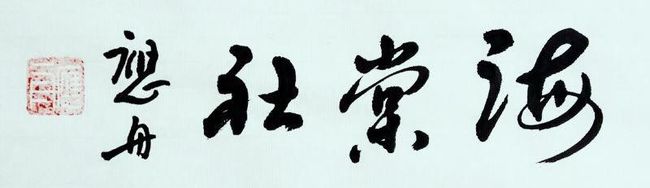 海棠社
舟